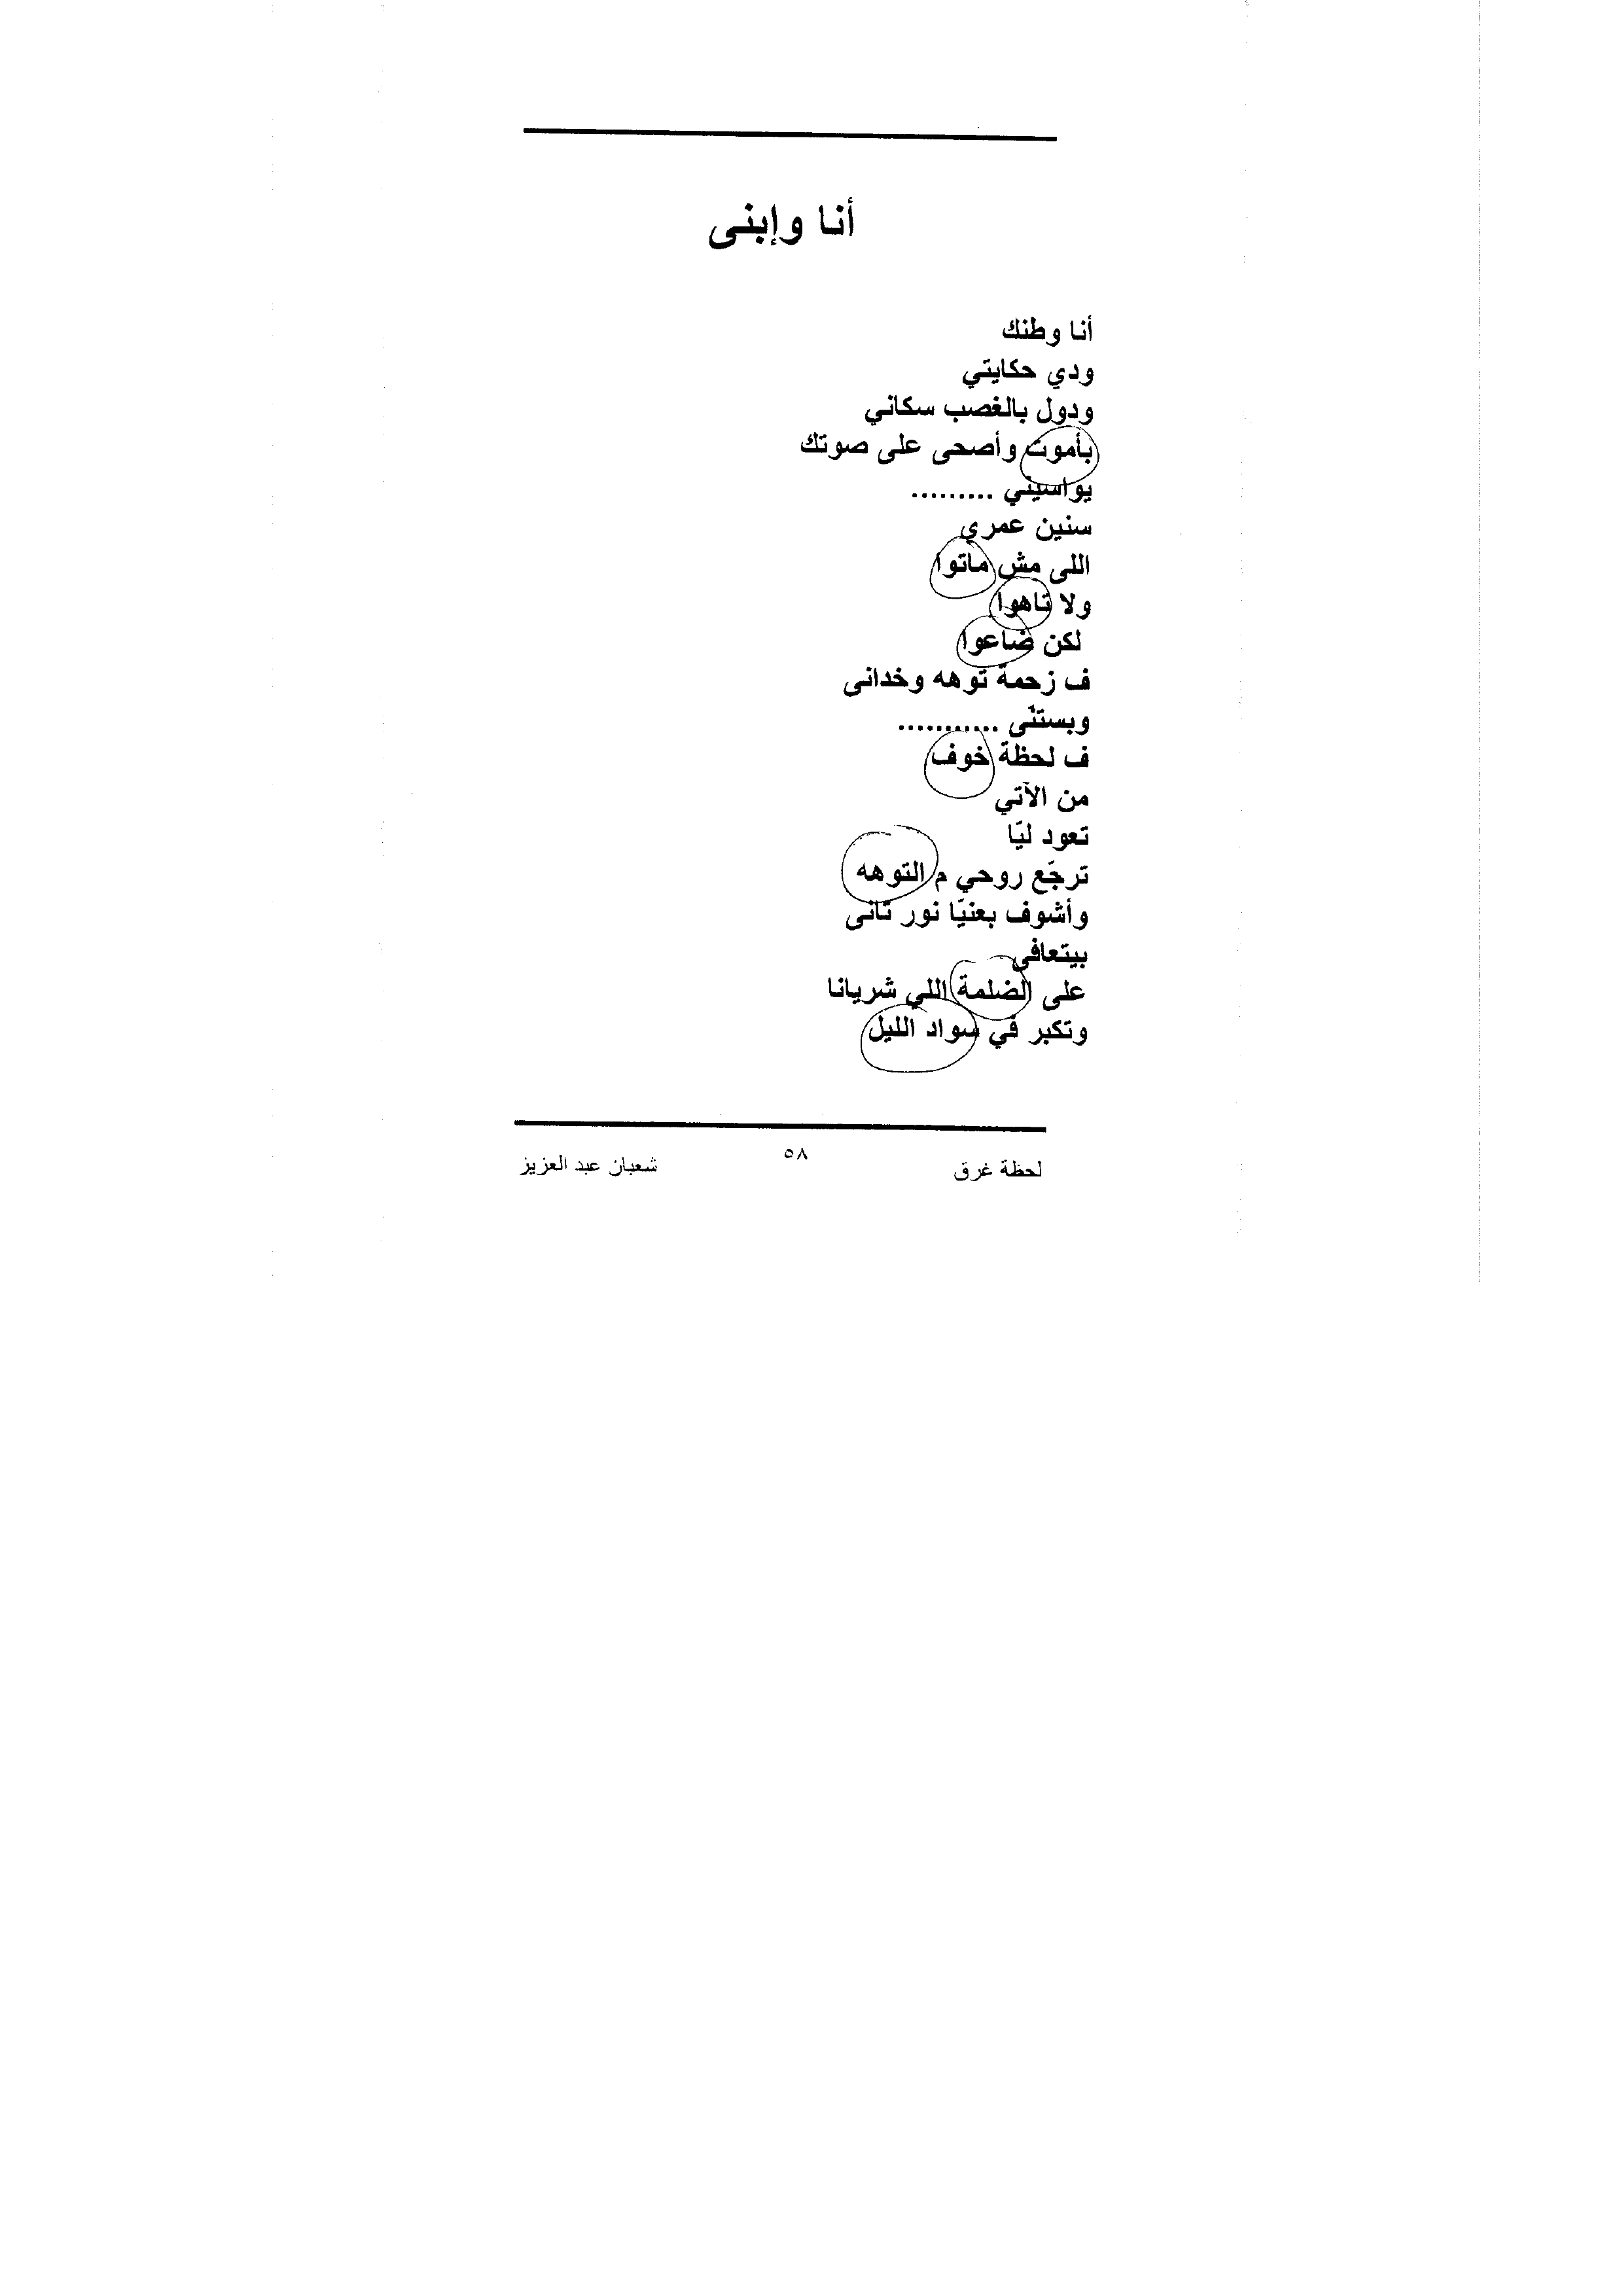 أنا وإبنى
أنا وطنك
ودي حكايتي
ودول بالغصب سكاني
بأموت وأصحى على صوتك
يواسيني .........
سنين عمري
اللى مش ماتوا
ولا تاهوا
لكن ضاعوا
ف زحمة توهه وخدانى
وبستنّى ...........
ف لحظة خوف
من الآتي
تعود ليّا
ترجّع روحي م التوهه
وأشوف بعنيّا نور تانى
بيتعافى
على الضلمة اللي شريانا
وتكبر في سواد الليل
لحظة غرق ٥٨ شعبان عبد العزيز